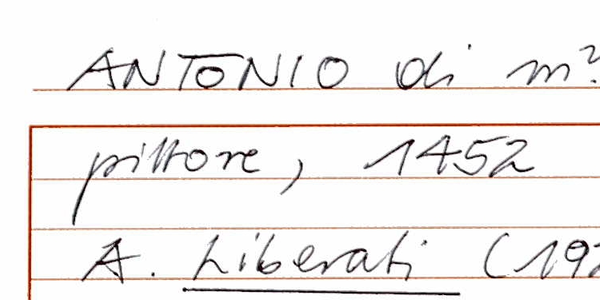 ANTONIO di m?
pittore, 1452
A. Liberati (192